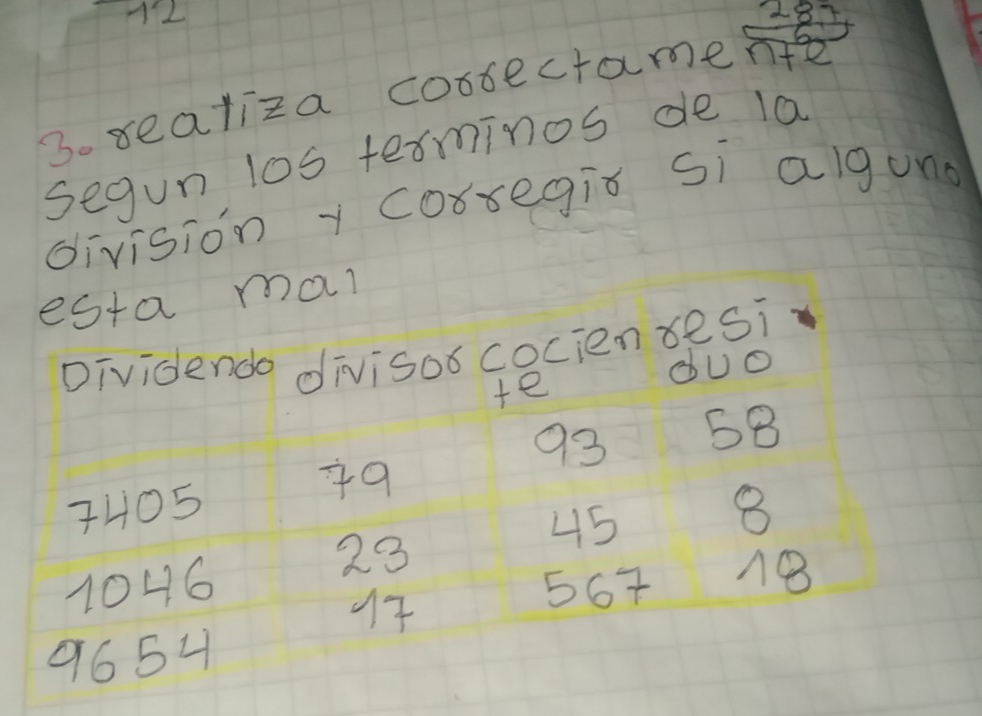 12
287
3. realiza correctamente
segun los terminos de la
división y corregir si alguno
esta mal
Dividendo divisor cocien resi
te duo
7405 79 93 58
1046 23 45 8
9654 17 567 18